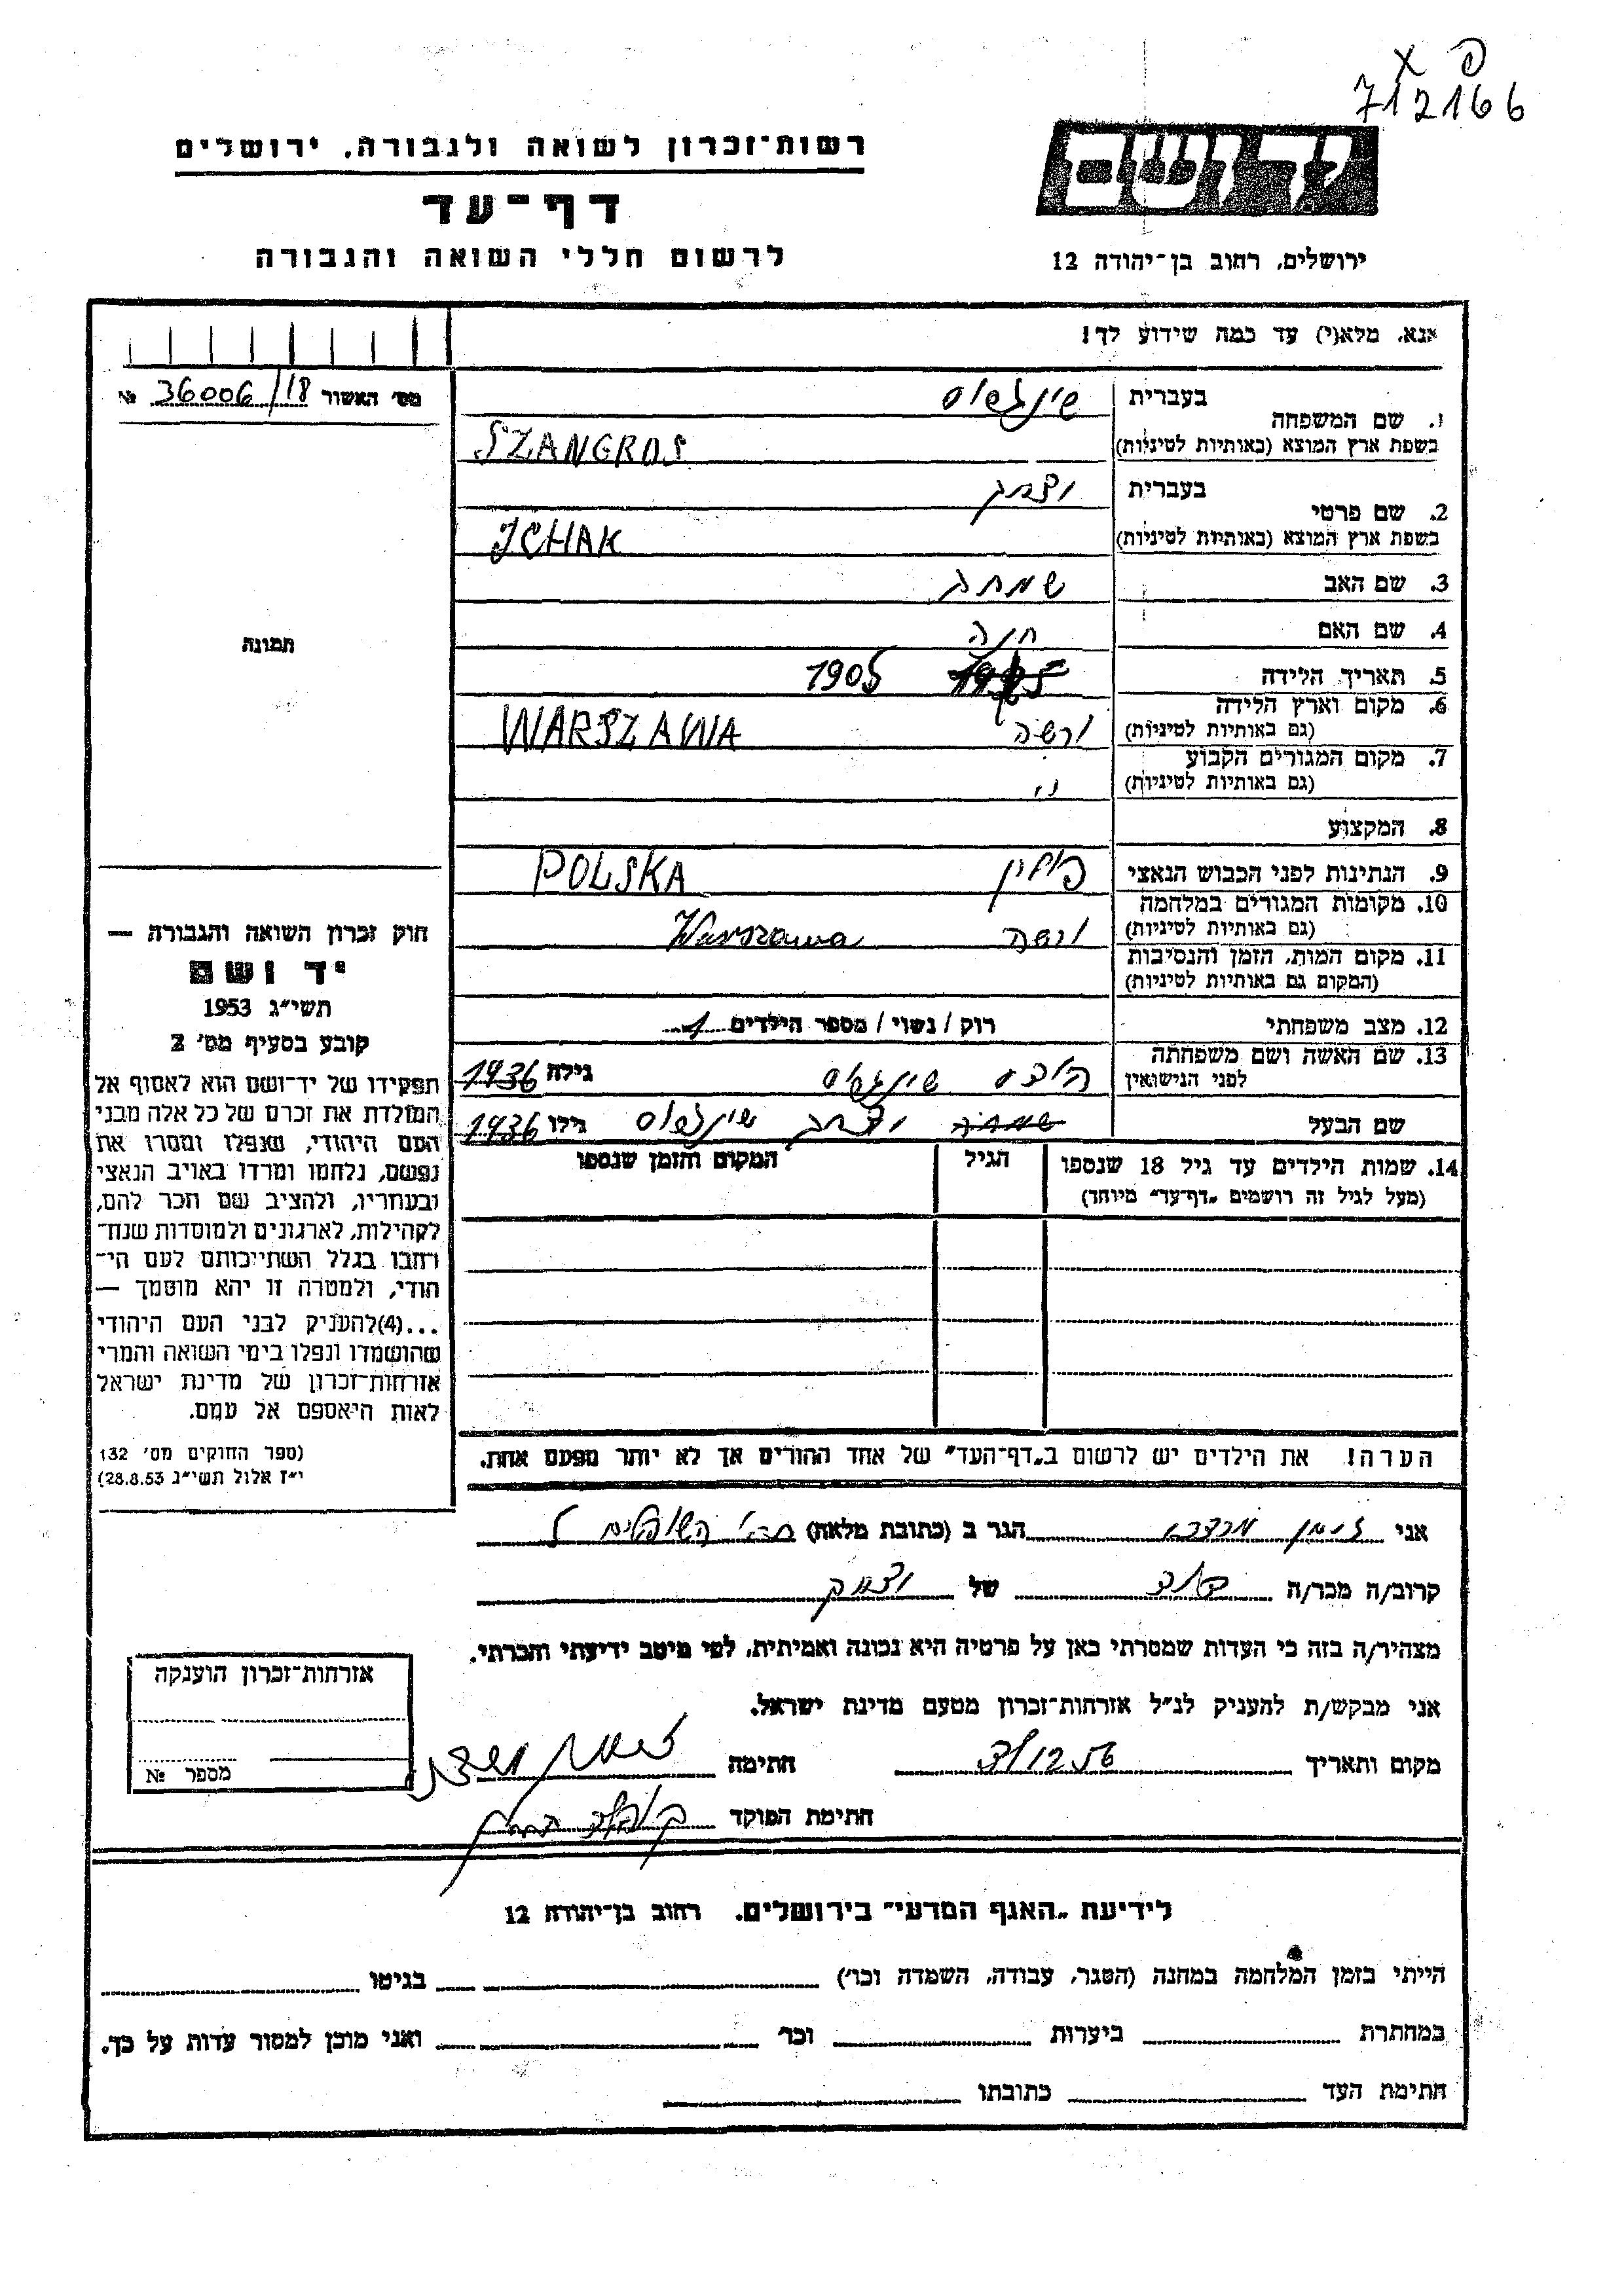 פ X
712166
רשות־זכרון לשואה ולגבורה, ירושלים
דף־עד
לרשום חללי השואה והגבורה
ידושם
ירושלים, רחוב בן־יהודה 12
אנא, מלא(י) עד כמה שידוע לך!
מס׳ האשור 36006/18 №
1. שם המשפחה בעברית
בשפת ארץ המוצא (באותיות לטיניות) SZANGROS
2. שם פרטי בעברית יצחק
בשפת ארץ המוצא (באותיות לטיניות) ICHAK
3. שם האב שמחה
4. שם האם חנה
5. תאריך הלידה 1905
6. מקום וארץ הלידה ורשה WARSZAWA
(גם באותיות לטיניות)
7. מקום המגורים הקבוע
(גם באותיות לטיניות) ״
8. המקצוע
9. הנתינות לפני הכבוש הנאצי פולין POLSKA
10. מקומות המגורים במלחמה ורשה Warszawa
(גם באותיות לטיניות)
11. מקום המות, הזמן והנסיבות
(המקום גם באותיות לטיניות)
12. מצב משפחתי רוק / נשוי / מספר הילדים 1
13. שם האשה ושם משפחתה
לפני הנישואין גילה 1936
שם הבעל יצחק גילו 1936
14. שמות הילדים עד גיל 18 שנספו הגיל המקום והזמן שנספו
(מעל לגיל זה רושמים „דף־עד״ מיוחד)
הערה! את הילדים יש לרשום ב„דף־העד״ של אחד ההורים אך לא יותר מפעם אחת.
תמונה
חוק זכרון השואה והגבורה —
יד ושם
תשי״ג 1953
קובע בסעיף מס׳ 2
תפקידו של יד־ושם הוא לאסוף אל
המולדת את זכרם של כל אלה מבני
העם היהודי, שנפלו ומסרו את
נפשם, נלחמו ומרדו באויב הנאצי
ובעוזריו, ולהציב שם וזכר להם,
לקהילות, לארגונים ולמוסדות שנח־
רבו בגלל השתייכותם לעם הי־
הודי, ולמטרה זו יהא מוסמך —
...(4)להעניק לבני העם היהודי
שהושמדו ונפלו בימי השואה והמרי
אזרחות־זכרון של מדינת ישראל
לאות היאספם אל עמם.
(ספר החוקים מס׳ 132
י״ז אלול תשי״ג 28.8.53)
אני הגר ב (כתובת מלאה)
קרוב/ה מכר/ה של יצחק
מצהיר/ה בזה כי העדות שמסרתי כאן על פרטיה היא נכונה ואמיתית, לפי מיטב ידיעתי והכרתי.
אני מבקש/ת להעניק לנ״ל אזרחות־זכרון מטעם מדינת ישראל.
מקום ותאריך חתימה
חתימת הפוקד
אזרחות־זכרון הוענקה
מספר №
לידיעת „האגף המדעי״ בירושלים, רחוב בן־יהודה 12
הייתי בזמן המלחמה במחנה (הסגר, עבודה, השמדה וכו׳) בגיטו
במחתרת ביערות וכו׳ ואני מוכן למסור עדות על כך.
חתימת העד כתובתו